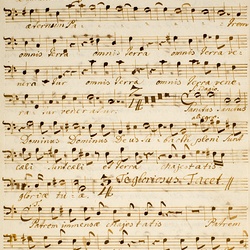 aeternum P:
omnis terra omnis terra omnis terra ve
nera tur omnis terra omnis terra vene
ra tur veneratur. Sanctus Sanctus
Dominus Dominus Deus Sabaoth pleni sunt
caeli sunt caeli et terra Majestatis
gloriae tuae Te gloriosus Tacet
Patrem immensae Majestatis Patrem